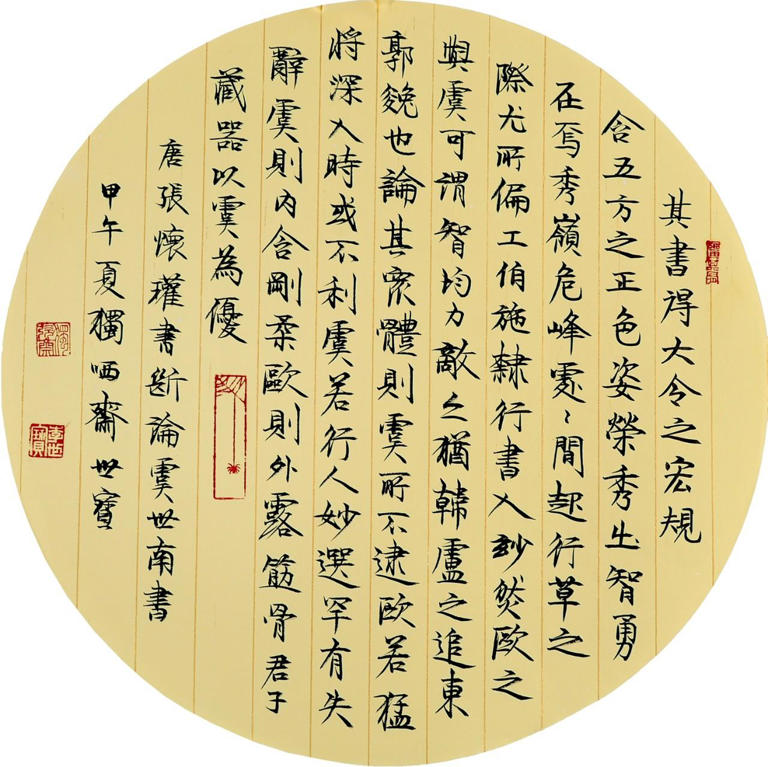 其書得大令之宏規
含五方之正色姿榮秀出智勇
在焉秀嶺危峰處〻間起行草之
際尤所偏工伯施隸行書入妙然歐之
與虞可謂智均力敵亦猶韓盧之追東
郭㕙也論其衆體則虞所不逮歐若猛
將深入時或不利虞若行人妙選罕有失
辭虞則內含剛柔歐則外露筋骨君子
藏器以虞為優
唐張懷瓘書斷論虞世南書
甲午夏獨哂齋世寶